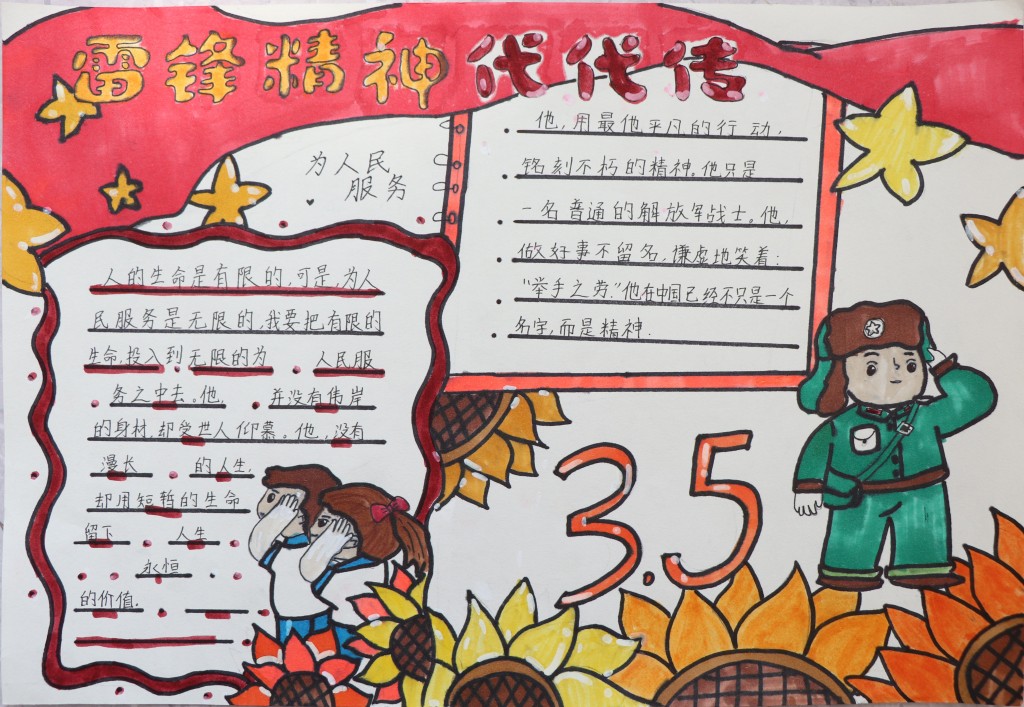 雷锋精神代代传
为人民
服务
他,用最他平凡的行动,
铭刻不朽的精神。他只是
一名普通的解放军战士。他,
做好事不留名,谦虚地笑着:
“举手之劳”他在中国已经不只是一个
名字,而是精神.
人的生命是有限的,可是,为人
民服务是无限的,我要把有限的
生命,投入到无限的为 人民服
务之中去。他, 并没有伟岸
的身材,却受世人仰慕。他,没有
漫长 的人生,
却用短暂的生命
留下 人生
永恒
的价值.
3.5